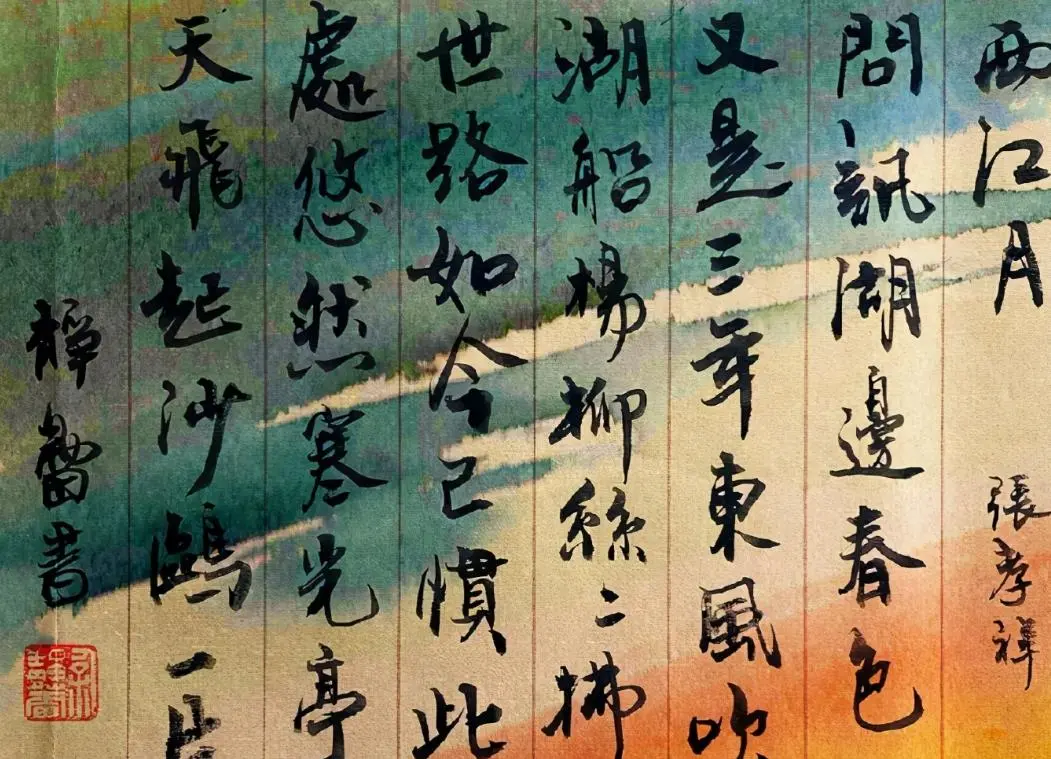 西江月 張孝祥
問訊湖邊春色
又是三年東風吹
湖船楊柳絲〻拂
世路如今已慣此
處悠然寒光亭
天飛起沙鷗一片
靜蕾書